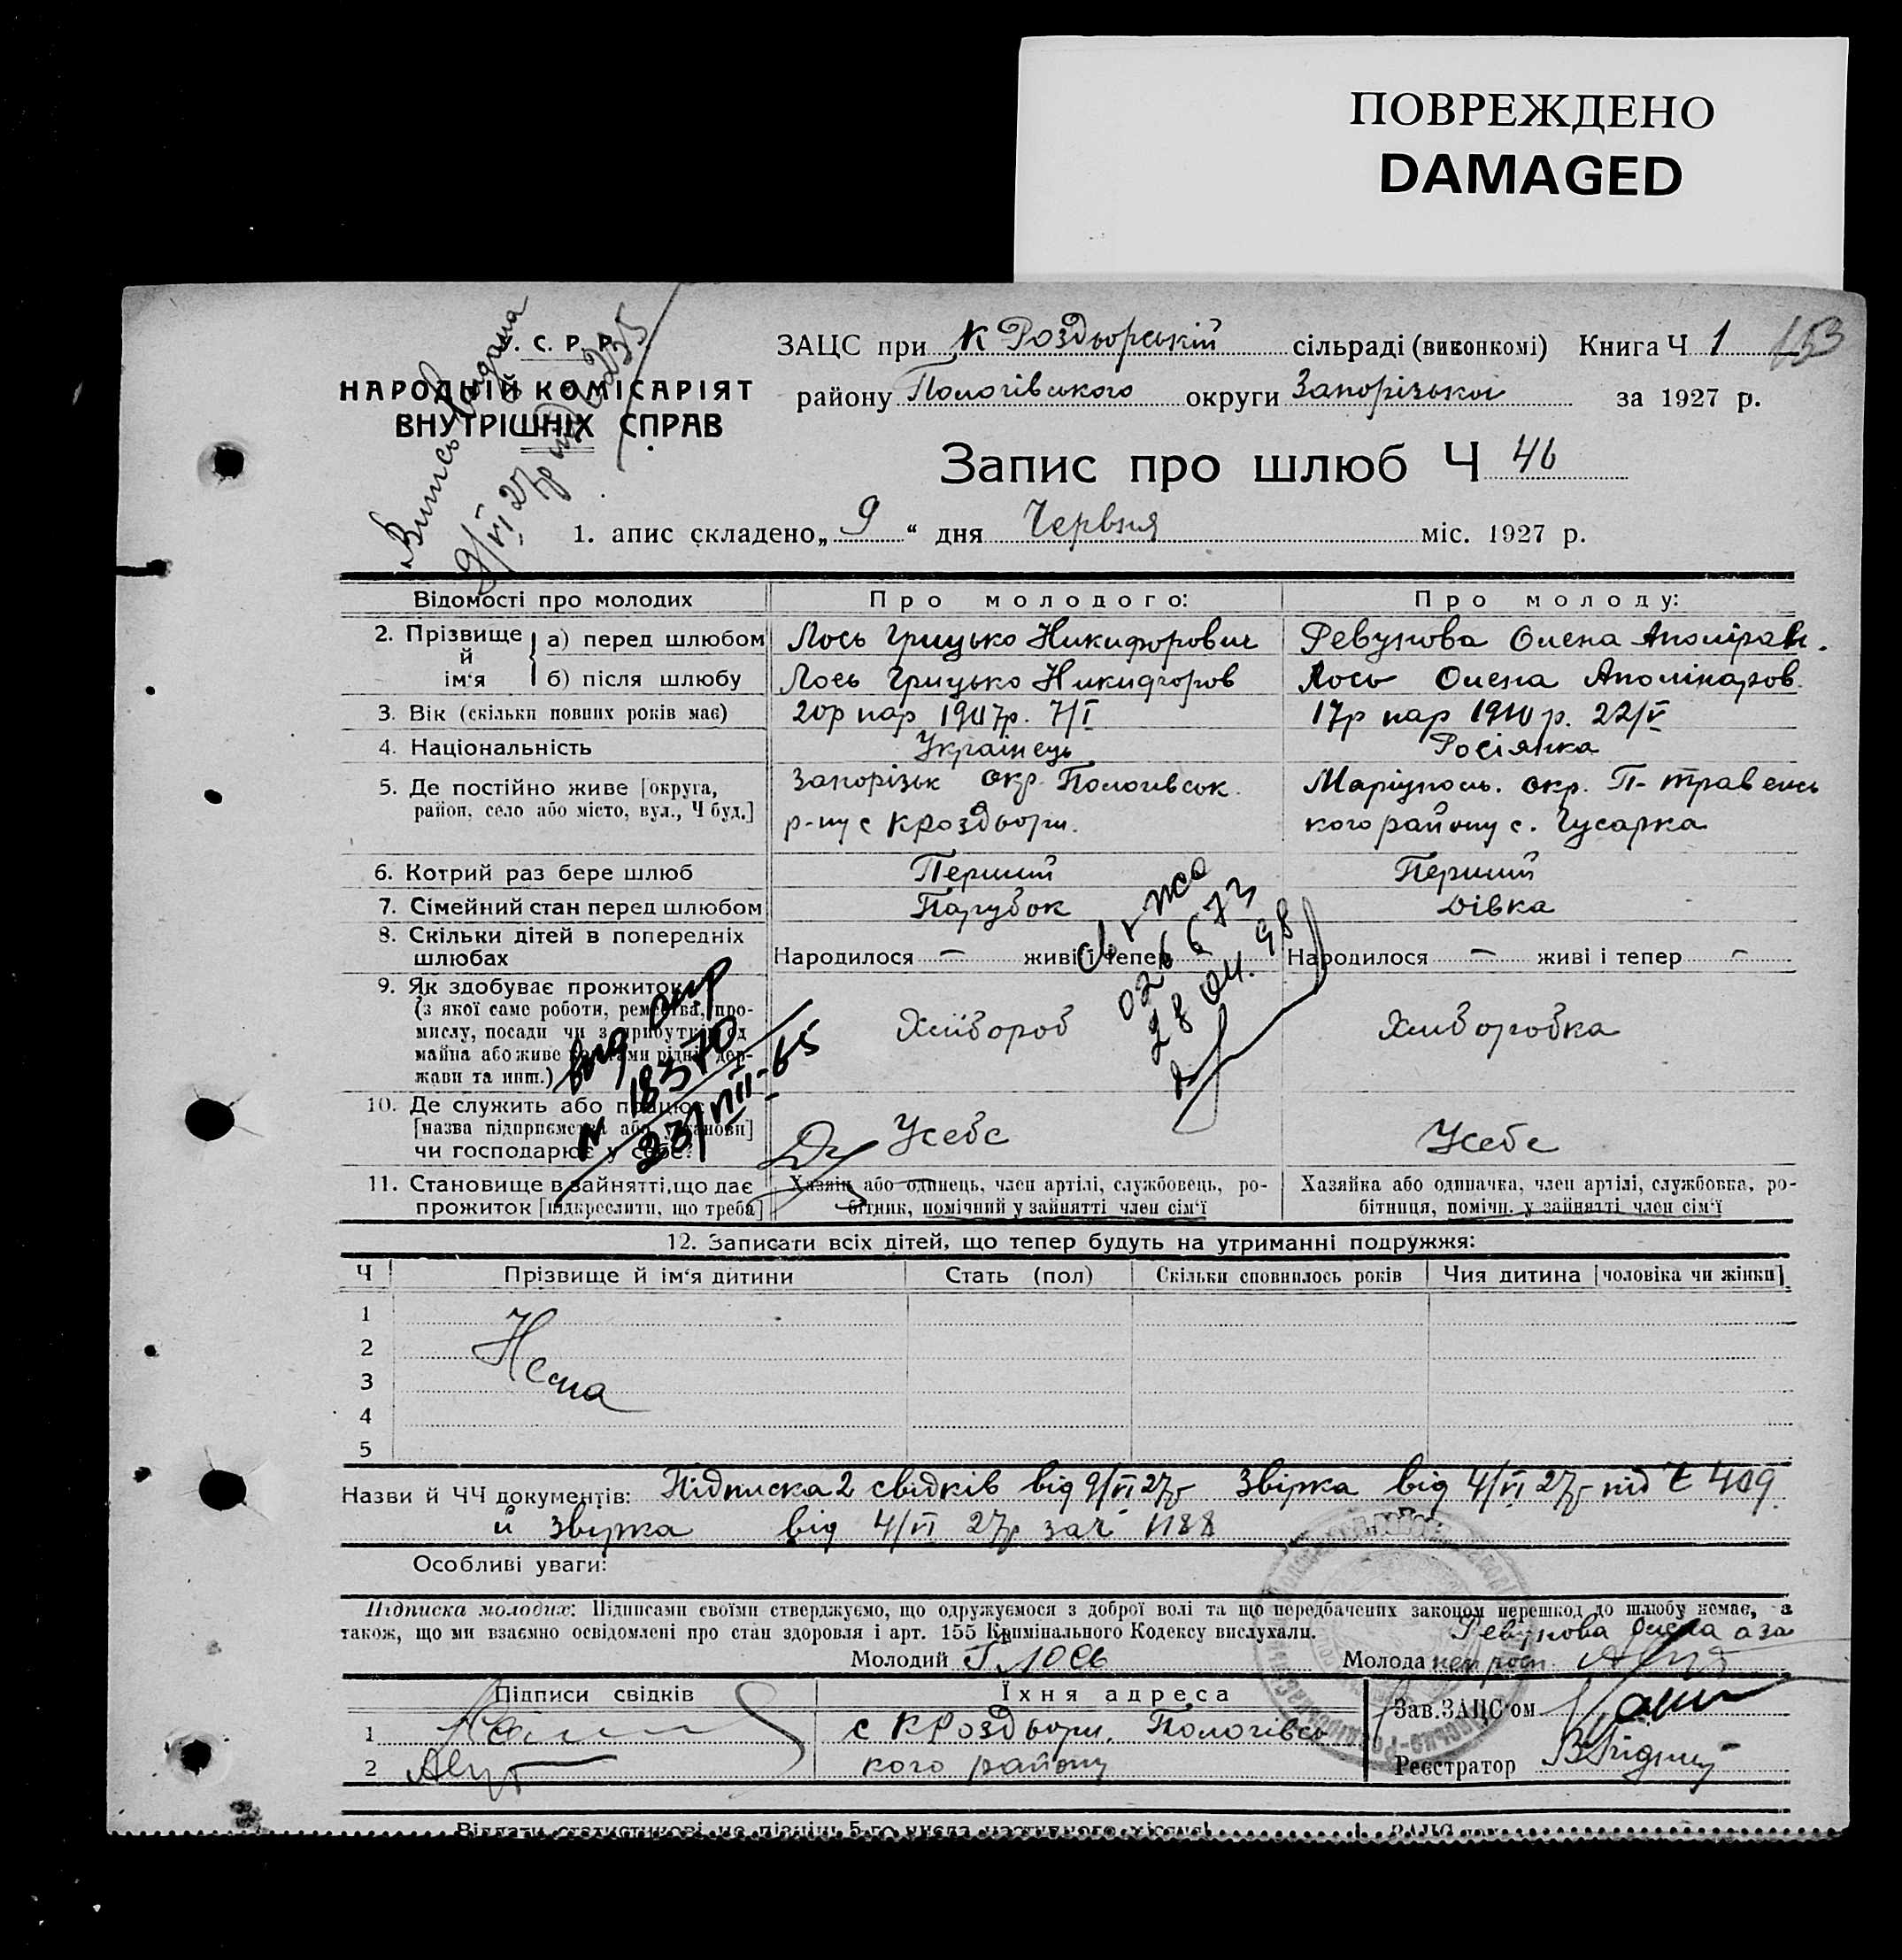 ПОВРЕЖДЕНО
DAMAGED
У. С. Р. Р.
НАРОДНІЙ КОМІСАРІЯТ
ВНУТРІШНІХ СПРАВ
Випись видана
9/VI 27р під 235
ЗАЦС при К Роздорській сільраді (виконкомі) Книга Ч 1 153
району Пологівського округи Запорізької за 1927 р.
Запис про шлюб Ч 46
1. апис складено „ 9 “ дня Червня міс. 1927 р.
Відомості про молодих Про молодого: Про молоду:
2. Прізвище й ім‘я а) перед шлюбом Лось Грицько Никифорович Ревунова Олена Аполінаров.
б) після шлюбу Лось Грицько Никифоров Лось Олена Аполінаров.
3. Вік (скільки повних років має) 20р нар 1907р. 7/I 17р нар 1910 р. 22/V
4. Національність Українець Росіянка
5. Де постійно живе [округа, район, село або місто, вул., Ч буд.] Запорізьк окр. Пологівськ. Маріуполь. окр. П-травенсь
р-ну с КРоздори. кого району с. Гусарка
6. Котрий раз бере шлюб Перший Перший
7. Сімейний стан перед шлюбом Парубок Дівка
8. Скільки дітей в попередніх шлюбах Народилося — живі і тепер Народилося — живі і тепер —
9. Як здобуває прожиток
(з якої саме роботи, ремества, про-
мислу, посади чи з прибутків од
майна або живе коштами рідні, дер-
жави та инш.) Хлібороб Хліборобка
026673
28 04. 98
N 18370
23/VIII-65
10. Де служить або працює
[назва підприємства або установи]
чи господарює у себе? У себе У себе
11. Становище в зайнятті, що дає Хазяїн або одинець, член артілі, службовець, ро- Хазяйка або одиначка, член артілі, службовка, ро-
прожиток [підкреслити, що треба] бітник, помічний у зайнятті член сім‘ї бітниця, помічн. у зайнятті член сім‘ї
12. Записати всіх дітей, що тепер будуть на утриманні подружжя:
Ч Прізвище й ім‘я дитини Стать (пол) Скільки сповнилось років Чия дитина [чоловіка чи жінки]
1
2 Нема
3
4
5
Назви й ЧЧ документів: Підписка 2 свідків від 9/VI 27р Звірка від 4/VI 27р під Ч 409
й звірка від 4/VI 27р за Ч 1188
Особливі уваги:
Підписка молодих: Підписами своїми стверджуємо, що одружуємося з доброї волі та що передбачених законом перешкод до шлюбу немає, а
також, що ми взаємно освідомлені про стан здоровля і арт. 155 Кримінального Кодексу вислухали. Ревунова Олена а за
Молодий Г Лось Молода
Підписи свідків Їхня адреса Зав. ЗАЦС‘ом
1 с КРоздори. Пологівсь
2 кого району Реєстратор